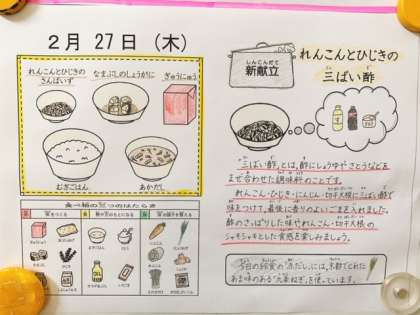 2月 27日 (木)
れんこんとひじきの
さんばいず
なまぶしのしょうがに
ぎゅうにゅう
むぎごはん
あかだし
食べ物の三つのはたらき
しんこんだて
新献立
れんこんとひじきの
三ばい酢
「三ばい酢」とは、酢にしょうゆやさとうなどを
まぜ合わせた調味料のことです。
れんこん・ひじき・にんじん・切干大根に三ばい酢で
味をつけて、最後に香りのよいごまを入れました。
酢のさっぱりした味やれんこん・切干大根の
シャキシャキとした食感を楽しみましょう。
今日の給食の「赤だし」には、京都でとれた
あま味のある"九条ねぎ"を使っています。